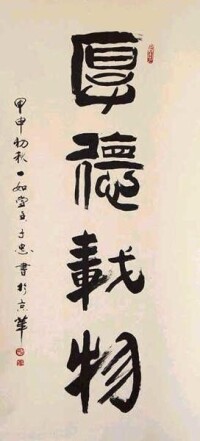 厚德載物
甲申初秋一如堂主于忠書於京華